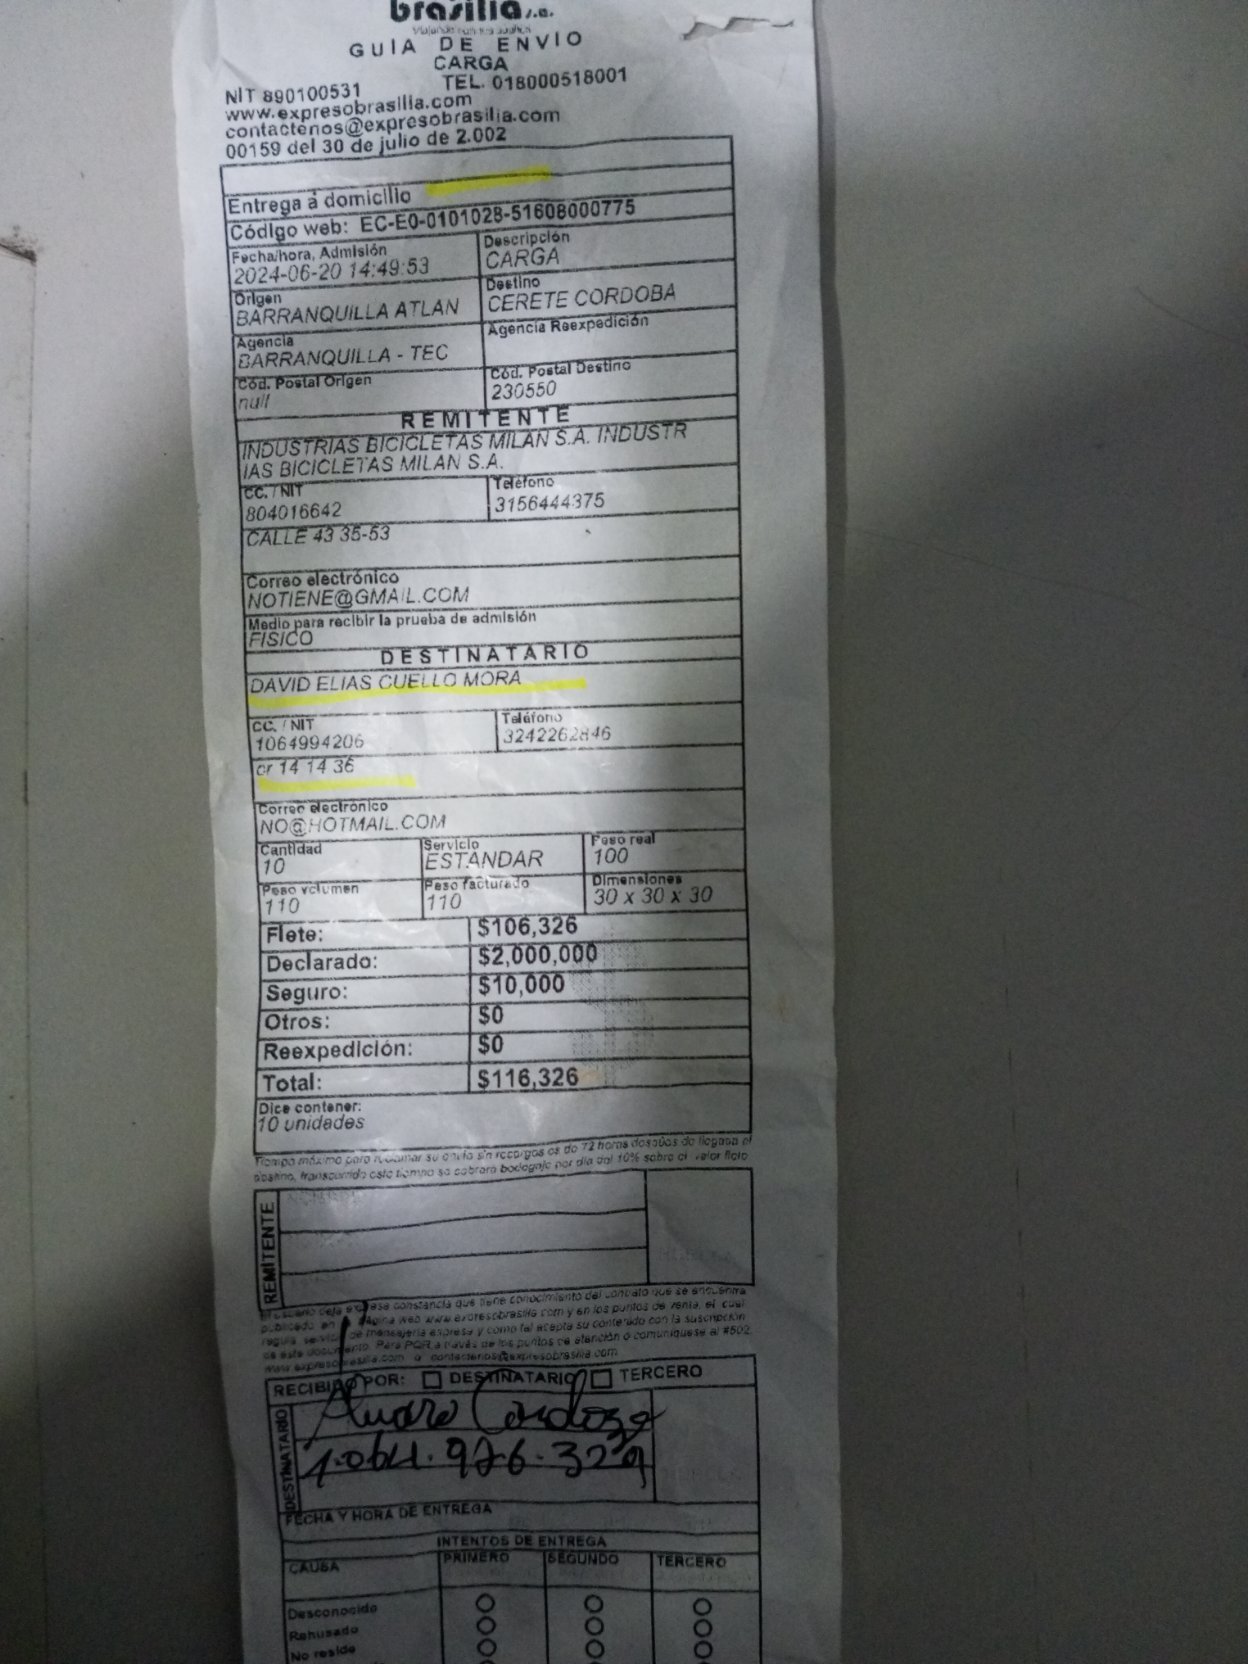 brasilia s.a.
GUIA DE ENVIO
CARGA
NIT 890100531 TEL. 018000518001
www.expresobrasilia.com
contactenos@expresobrasilia.com
00159 del 30 de julio de 2.002
Entrega a domicilio
Código web: EC-E0-0101028-51608000775
Fecha/hora, Admisión Descripción
2024-06-20 14:49:53 CARGA
Origen Destino
BARRANQUILLA ATLAN CERETE CORDOBA
Agencia Agencia Reexpedición
BARRANQUILLA - TEC
Cód. Postal Origen Cód. Postal Destino
null 230550
REMITENTE
INDUSTRIAS BICICLETAS MILAN S.A. INDUSTR
IAS BICICLETAS MILAN S.A.
CC. / NIT Teléfono
804016642 3156444375
CALLE 43 35-53
Correo electrónico
NOTIENE@GMAIL.COM
Medio para recibir la prueba de admisión
FISICO
DESTINATARIO
DAVID ELIAS CUELLO MORA
CC. / NIT Teléfono
1064994206 3242262846
cr 14 14 36
Correo electrónico
NO@HOTMAIL.COM
Cantidad Servicio Peso real
10 ESTANDAR 100
Peso volumen Peso facturado Dimensiones
110 110 30 x 30 x 30
Flete: $106,326
Declarado: $2,000,000
Seguro: $10,000
Otros: $0
Reexpedición: $0
Total: $116,326
Dice contener:
10 unidades
Tiempo máximo para reclamar su envío sin recargos es de 72 horas después de llegada al
destino, transcurrido este tiempo se cobrara bodegaje por día del 10% sobre el valor flete
REMITENTE
El usuario deja expresa constancia que tiene conocimiento del contrato que se encuentra
publicado en página web www.expresobrasilia.com y en los puntos de venta, el cual
regula servicio de mensajería expresa y como tal acepta su contenido con la suscripción
de este documento. Para PQR a través de los puntos de atención o comuníquese al #502
www.expresobrasilia.com o contactenos@expresobrasilia.com
RECIBIDO POR: DESTINATARIO TERCERO
DESTINATARIO
Alvaro Cardoza
1.064.976.329
FECHA Y HORA DE ENTREGA
INTENTOS DE ENTREGA
CAUSA PRIMERO SEGUNDO TERCERO
Desconocido
Rehusado
No reside